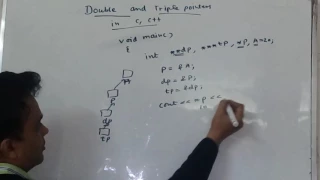 Double and Triple pointers
in c, c++
void main()
{
int **dp, ***tp, *p, A=20;
A
p = &A;
p
dp = &p;
dp
tp = &dp;
tp
cout << *p <<
10